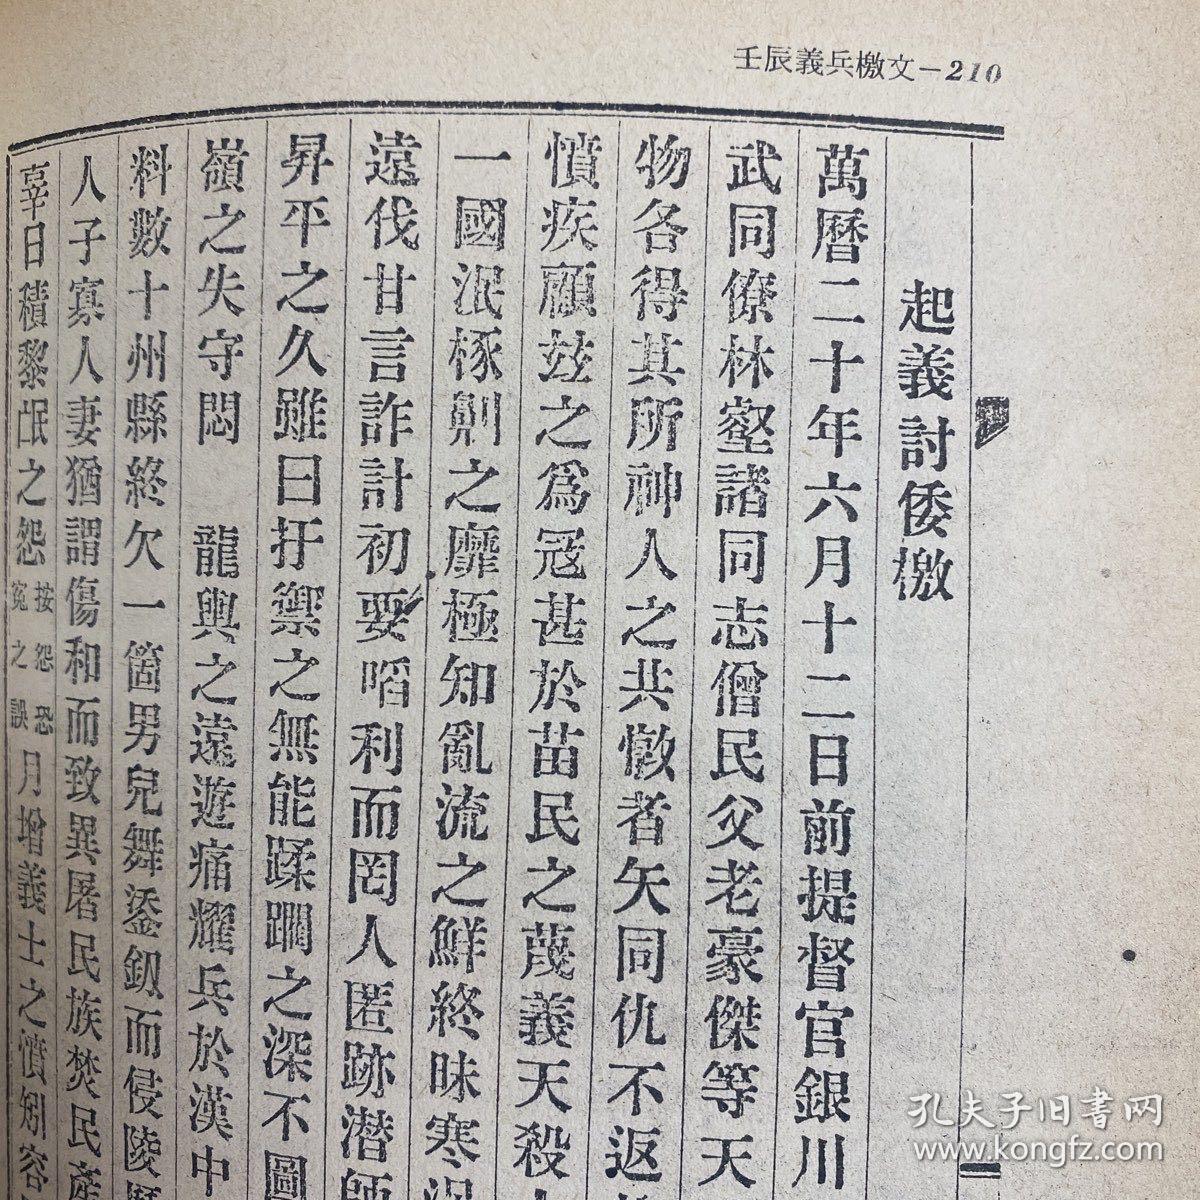 壬辰義兵檄文—210
起義討倭檄
萬曆二十年六月十二日前提督官銀川
武同僚林壑諸同志僧民父老豪傑等天
物各得其所神人之共憝者矢同仇不返
憤疾顧玆之為冦甚於苗民之蔑義天殺
一國泯椓劓之靡極知亂流之鮮終昧寒
遠伐甘言詐計初要啗利而罔人匿跡潜師
昇平之久雖曰扞禦之無能蹂躪之深不圖
嶺之失守悶 龍輿之遠遊痛耀兵於漢中
料數十州縣終欠一箇男兒舞鋈釰而侵陵
人子寡人妻猶謂傷和而致異屠民族焚民產
辜日積黎氓之怨按怨恐寃之誤月增義士之憤矧容
孔夫子旧書网
www.kongfz.com